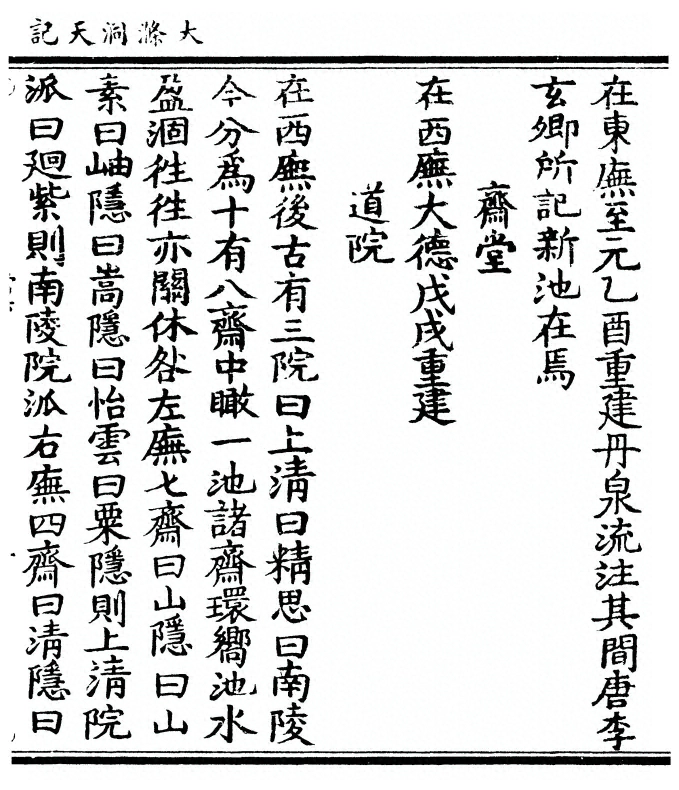 大滌洞天記
在東廡至元乙酉重建丹泉流注其間唐李
玄卿所記新池在焉
齋堂
在西廡大德戊戌重建
道院
在西廡後古有三院曰上清曰精思曰南陵
今分為十有八齋中瞰一池諸齋環嚮池水
盈涸徃徃亦關休咎左廡七齋曰山隱曰山
素曰岫隱曰嵩隱曰怡雲曰粟隱則上清院
派曰廻紫則南陵院派右廡四齋曰清隱曰